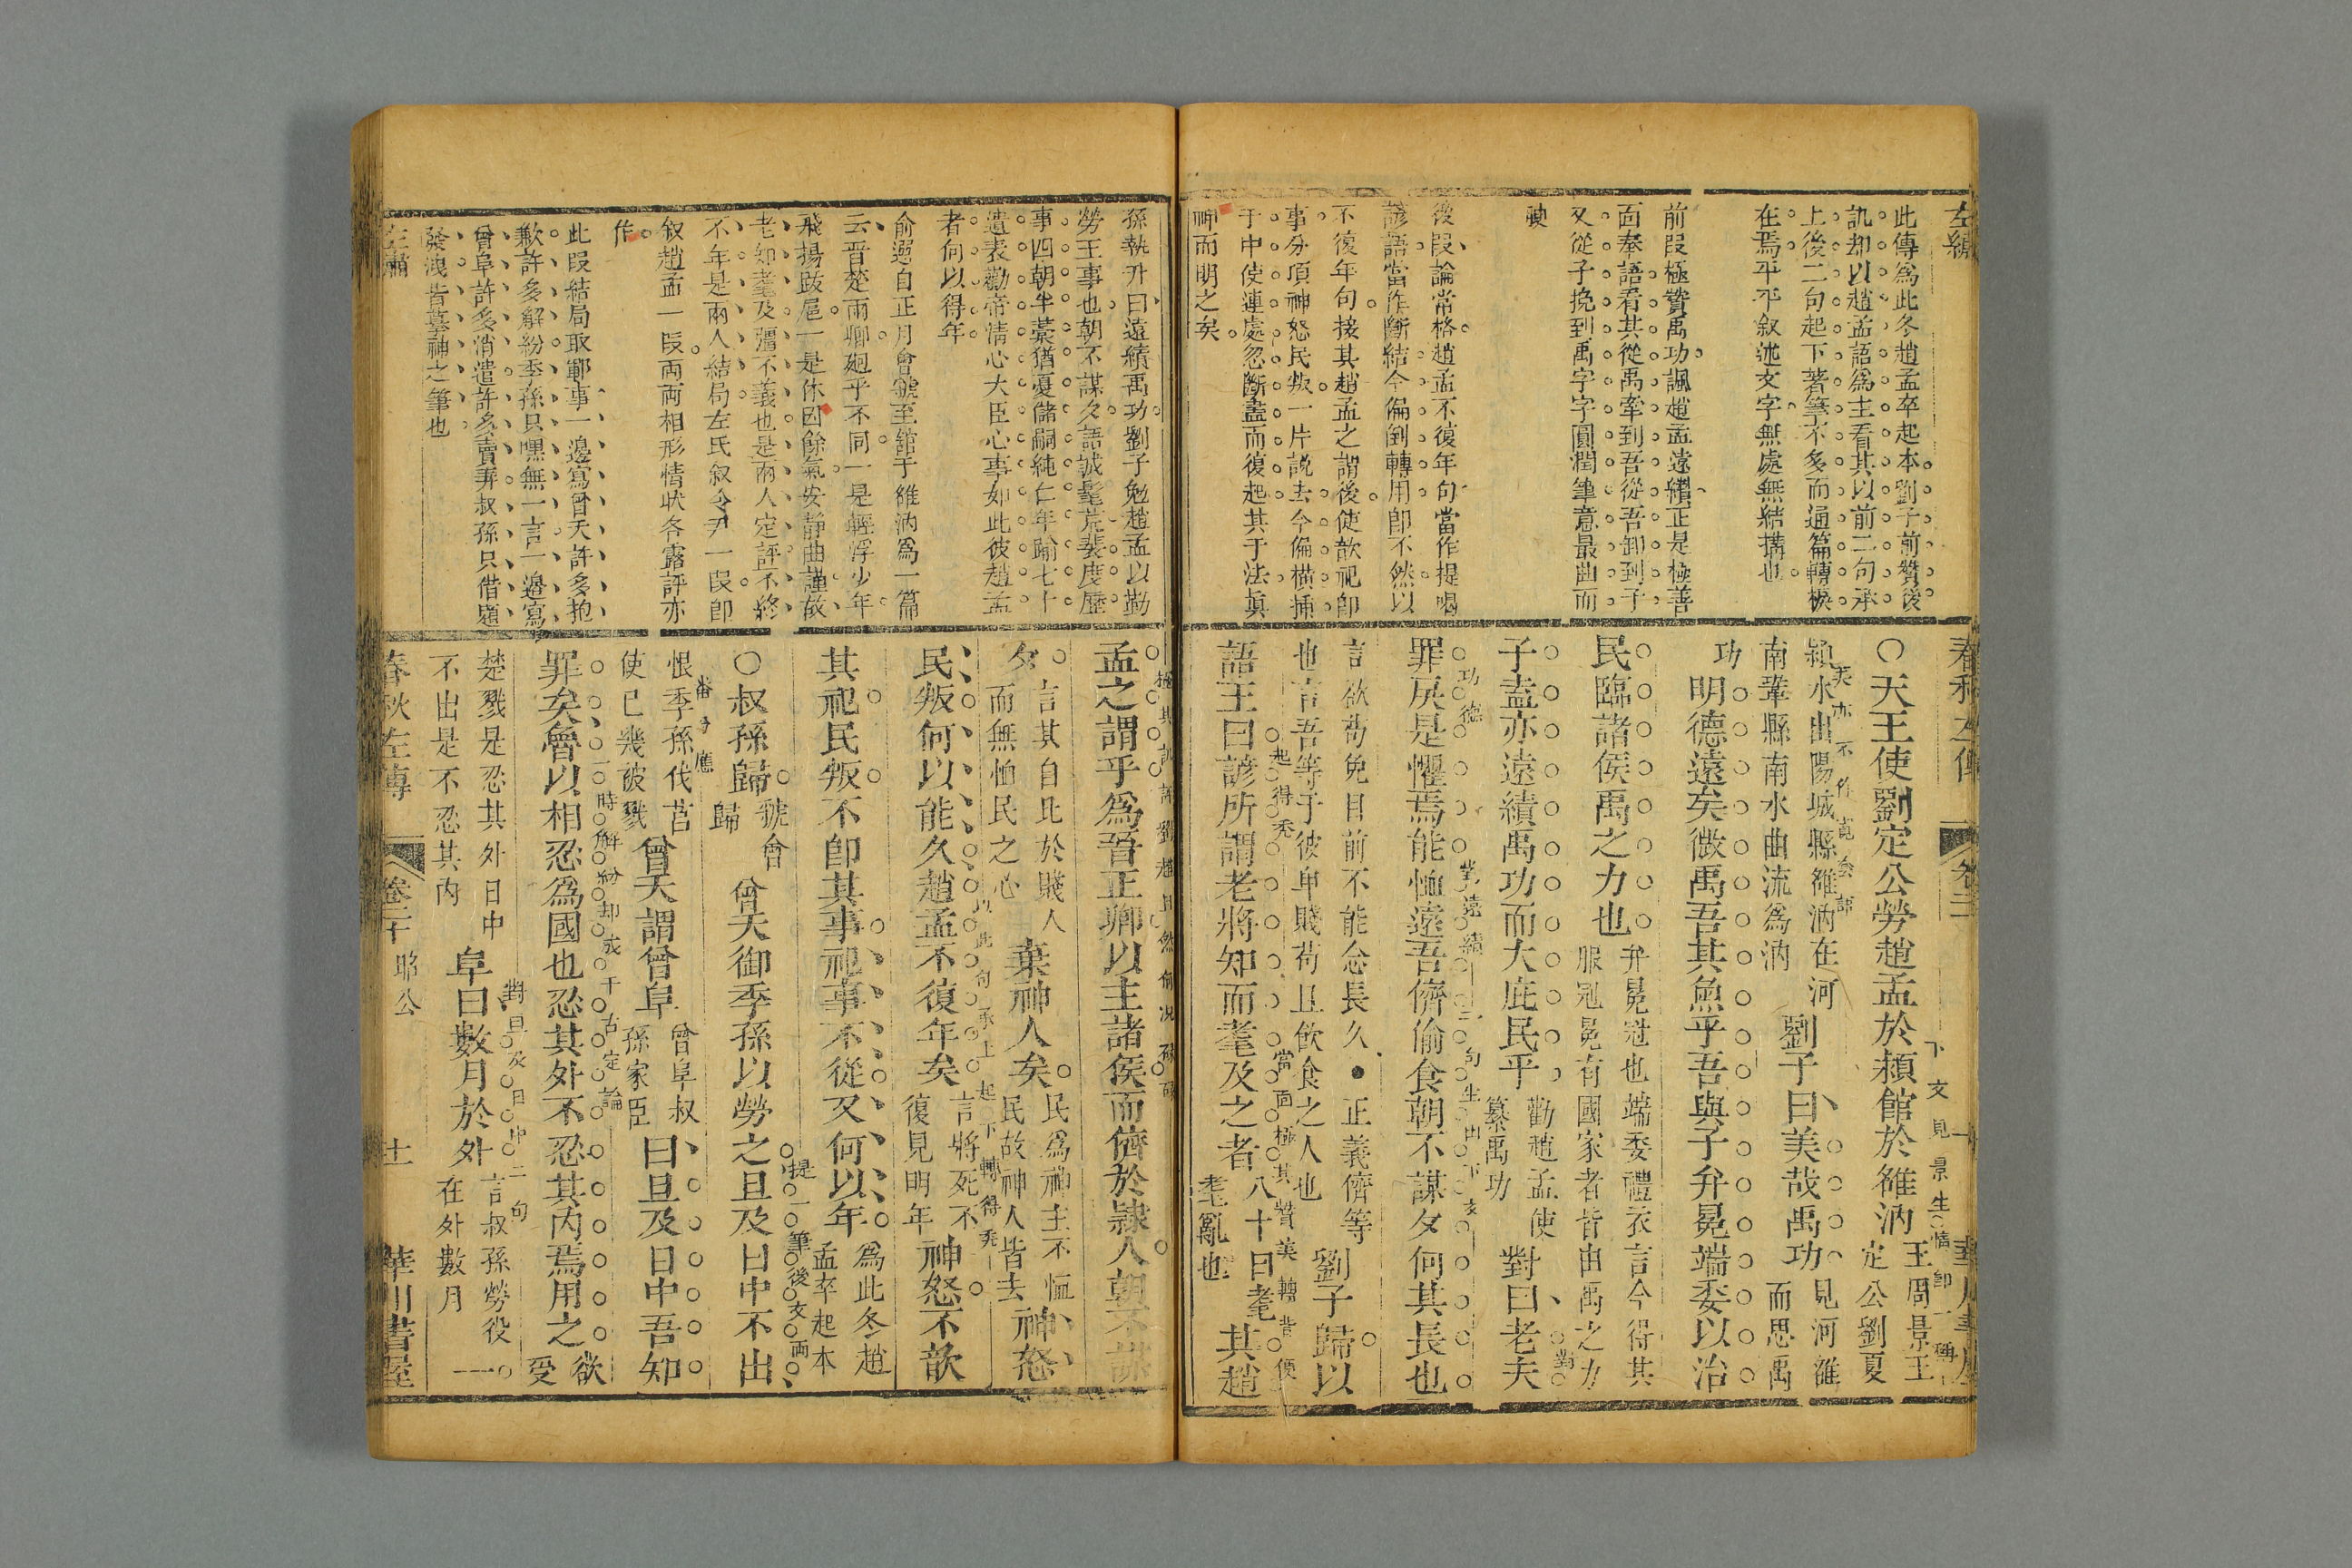 左繡
此傳爲此冬趙孟卒起本劉子前贊後
訊却以趙孟語爲主看其以前二句承
上後二句起下著筆不多而通篇轉棙
在焉平平叙述文字無處無結搆也
前段極贊禹功諷趙孟遠績正是極善
面奉語看其從禹牽到吾從吾卸到子
又從子挽到禹字字圓潤筆意最曲而
後段論常格趙孟不復年句當作提喝
諺語當作斷結今偏倒轉用卽不然以
不復年句接其趙孟之謂後使歆祀卽
事分項神怒民叛一片說去今偏橫揷
于中使連處忽斷盡而復起其于法眞
神而明之矣
春秋左傳
○天王使劉定公勞趙孟於潁館於雒汭
王周景王
定公劉夏
潁水出陽城縣雒汭在河
南鞏縣南水曲流爲汭
劉子曰美哉禹功
見河雒
而思禹
功
明德遠矣微禹吾其魚乎吾與子弁冕端委以治
民臨諸侯禹之力也
弁冕冠也端委禮衣言今得其
服冠冕有國家者皆由禹之力
子盍亦遠績禹功而大庇民乎
勸趙孟使
纂禹功
對曰老夫
罪戾是懼焉能恤遠吾儕偷食朝不謀夕何其長也
言欲苟免目前不能念長久●正義儕等
也言吾等于彼卑賤苟且飲食之人也
劉子歸以
語王曰諺所謂老將知而耄及之者
八十曰耄
耄亂也
其趙
孫執升曰遠績禹功劉子勉趙孟以勤
勞王事也朝不謀夕語誠髦荒裴度歷
事四朝半藁猶憂儲嗣純仁年踰七十
遺表勸帝清心大臣心事如此彼趙孟
者何以得年
俞選自正月會虢至館于雒汭爲一篇
云晉楚兩卿廻乎不同一是輕浮少年
飛揚跋扈一是休囚餘氣安靜曲謹故
老如耄及彊不義也是兩人定評不終
不年是兩人結局左氏叙令尹一段卽
叙趙孟一段兩兩相形情狀各露評亦
作
此段結局取鄆事一邊寫曾夭許多抱
歉許多解紛季孫只嘿無一言一邊寫
曾阜許多消遣許多賣弄叔孫只借題
發洩皆摹神之筆也
左繡
孟之謂乎爲晉正卿以主諸侯而儕於隸人朝不謀
夕
言其自比於賤人
而無恤民之心
棄神人矣
民爲神主不恤
民故神人皆去
神怒
民叛何以能久趙孟不復年矣
言將死不
復見明年
神怒不歆
其祀民叛不卽其事祀事不從又何以年
爲此冬趙
孟卒起本
○叔孫歸
虢會
歸
曾夭御季孫以勞之旦及日中不出
恨季孫伐莒
使已幾被戮
曾夭謂曾阜
曾阜叔
孫家臣
曰旦及日中吾知
罪矣魯以相忍爲國也忍其外不忍其內焉用之
欲
受
楚戮是忍其外日中
不出是不忍其內
阜曰數月於外
言叔孫勞役
在外數月
一
春秋左傳
卷二十
昭公
十一
華川書屋